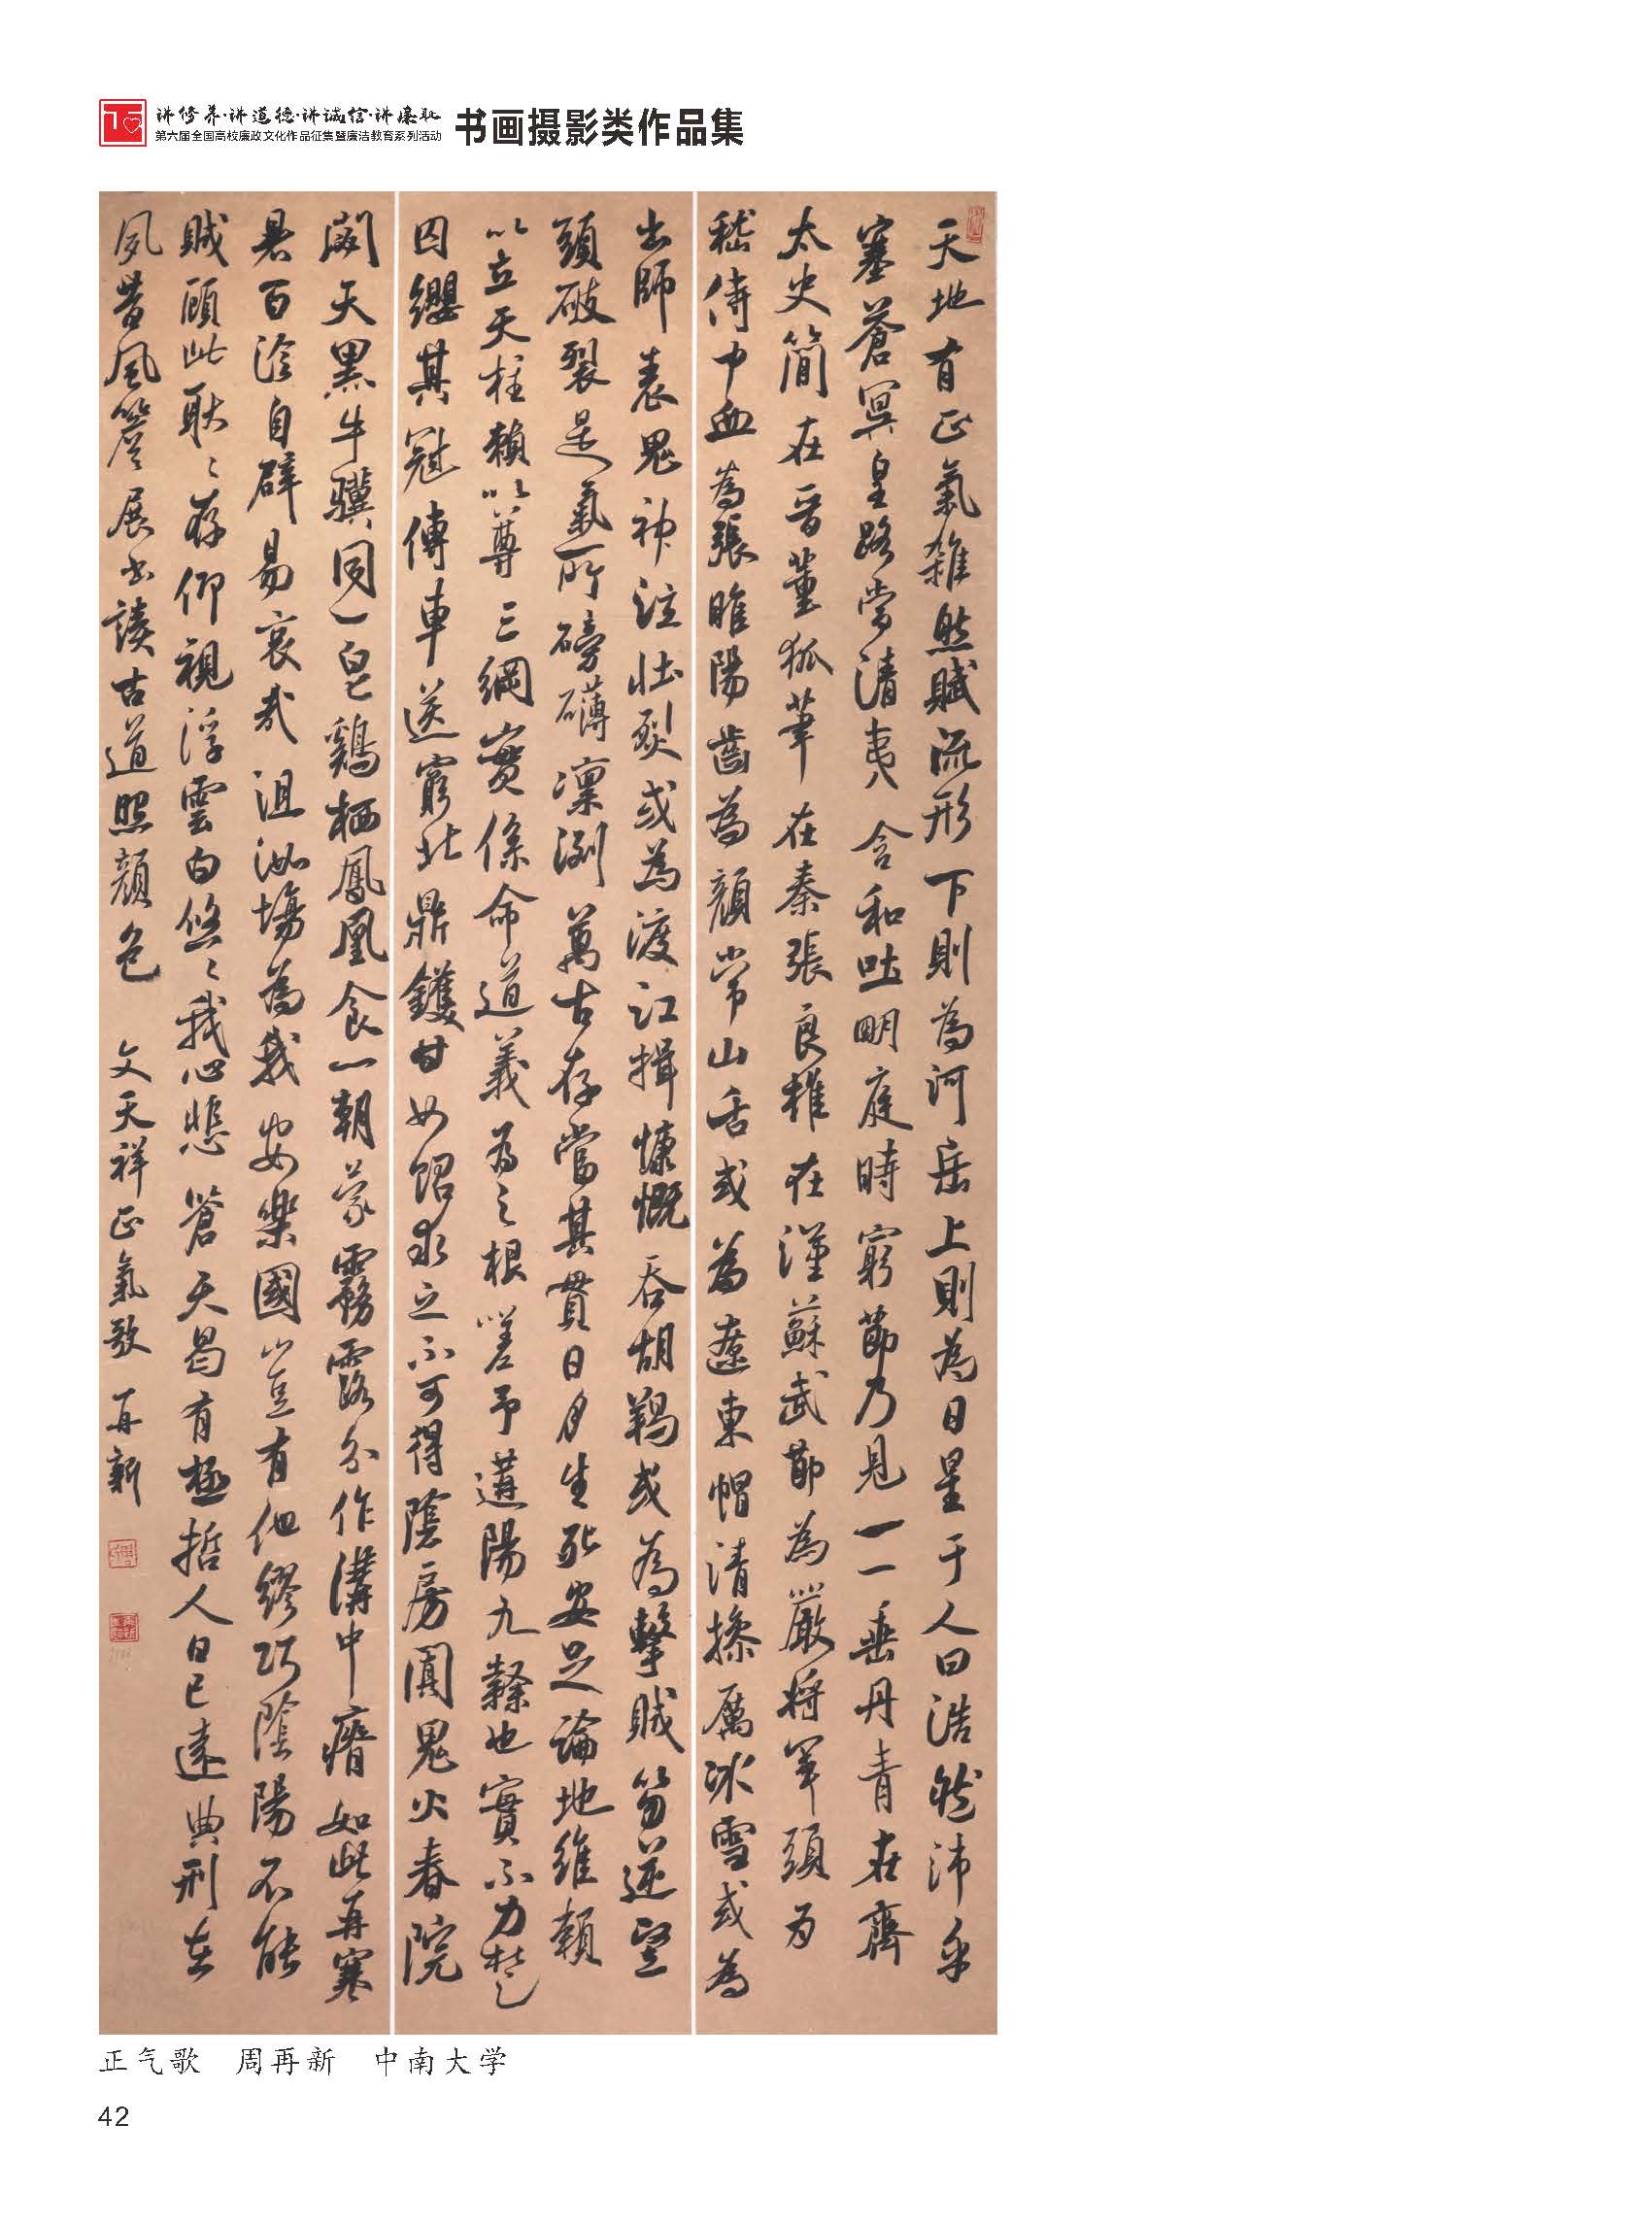 讲修养·讲道德·讲诚信·讲廉耻
第六届全国高校廉政文化作品征集暨廉洁教育系列活动
书画摄影类作品集
天地有正氣雜然賦流形下則為河岳上則為日星于人曰浩然沛乎
塞蒼冥皇路當清夷含和吐明庭時窮節乃見一一垂丹青在齊
太史簡在晉董狐筆在秦張良椎在漢蘇武節為嚴將軍頭為
嵇侍中血為張睢陽齒為顏常山舌或為遼東帽清操厲冰雪或為
出師表鬼神泣壯烈或為渡江楫慷慨吞胡羯或為擊賊笏逆豎
頭破裂是氣所磅礴凜冽萬古存當其貫日月生死安足論地維賴
以立天柱賴以尊三綱實係命道義為之根嗟予遘陽九隸也實不力楚
囚纓其冠傳車送窮北鼎鑊甘如飴求之不可得陰房闃鬼火春院
閟天黑牛驥同一皂鷄栖鳳凰食一朝蒙霧露分作溝中瘠如此再寒
暑百沴自辟易哀哉沮洳場為我安樂國豈有他繆巧陰陽不能
賊顧此耿々存仰視浮雲白悠々我心悲蒼天曷有極哲人日已遠典刑在
夙昔風簷展書讀古道照顏色 文天祥正氣歌 再新
正气歌 周再新 中南大学
42